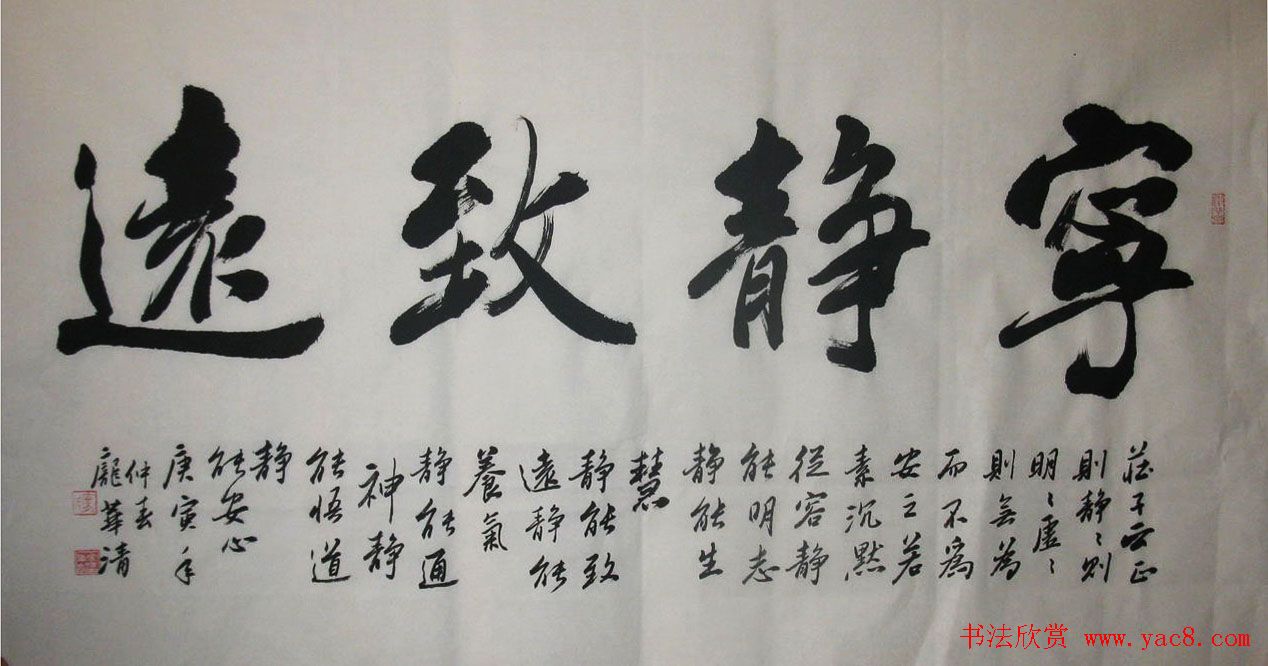 寧靜致遠
莊子云正
則静〻則
明〻虛〻
則無為
而不為
安之若
素沉默
從容静
能明志
静能生
慧
静能致
遠静能
養氣
静能通
神静
能悟道
静
能安心
庚寅年
仲春
龐華清
书法欣赏 www.yac8.com